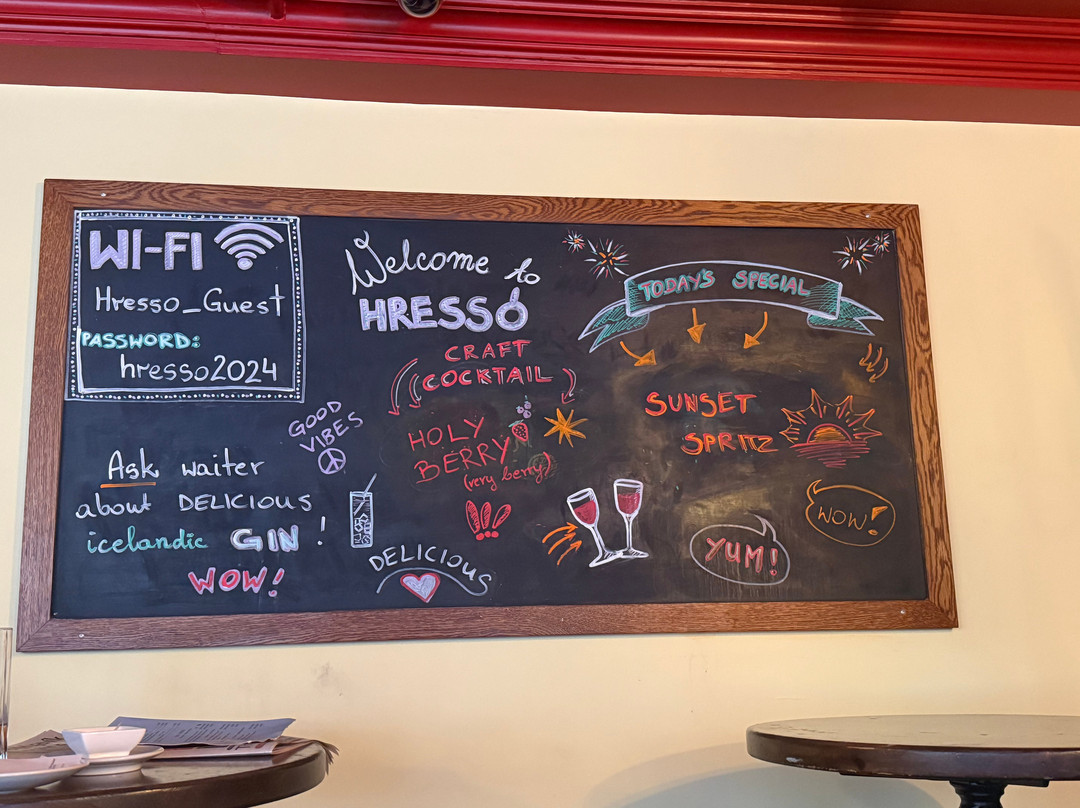 WI-FI
Hresso_Guest
PASSWORD:
hresso2024
Ask waiter
about DELICIOUS
icelandic GIN!
WOW!
Welcome to
HRESSÓ
CRAFT
COCKTAIL
GOOD
VIBES
HOLY
BERRY
(very berry)
DELICIOUS
TODAY'S SPECIAL
SUNSET
SPRITZ
YUM!
WOW!